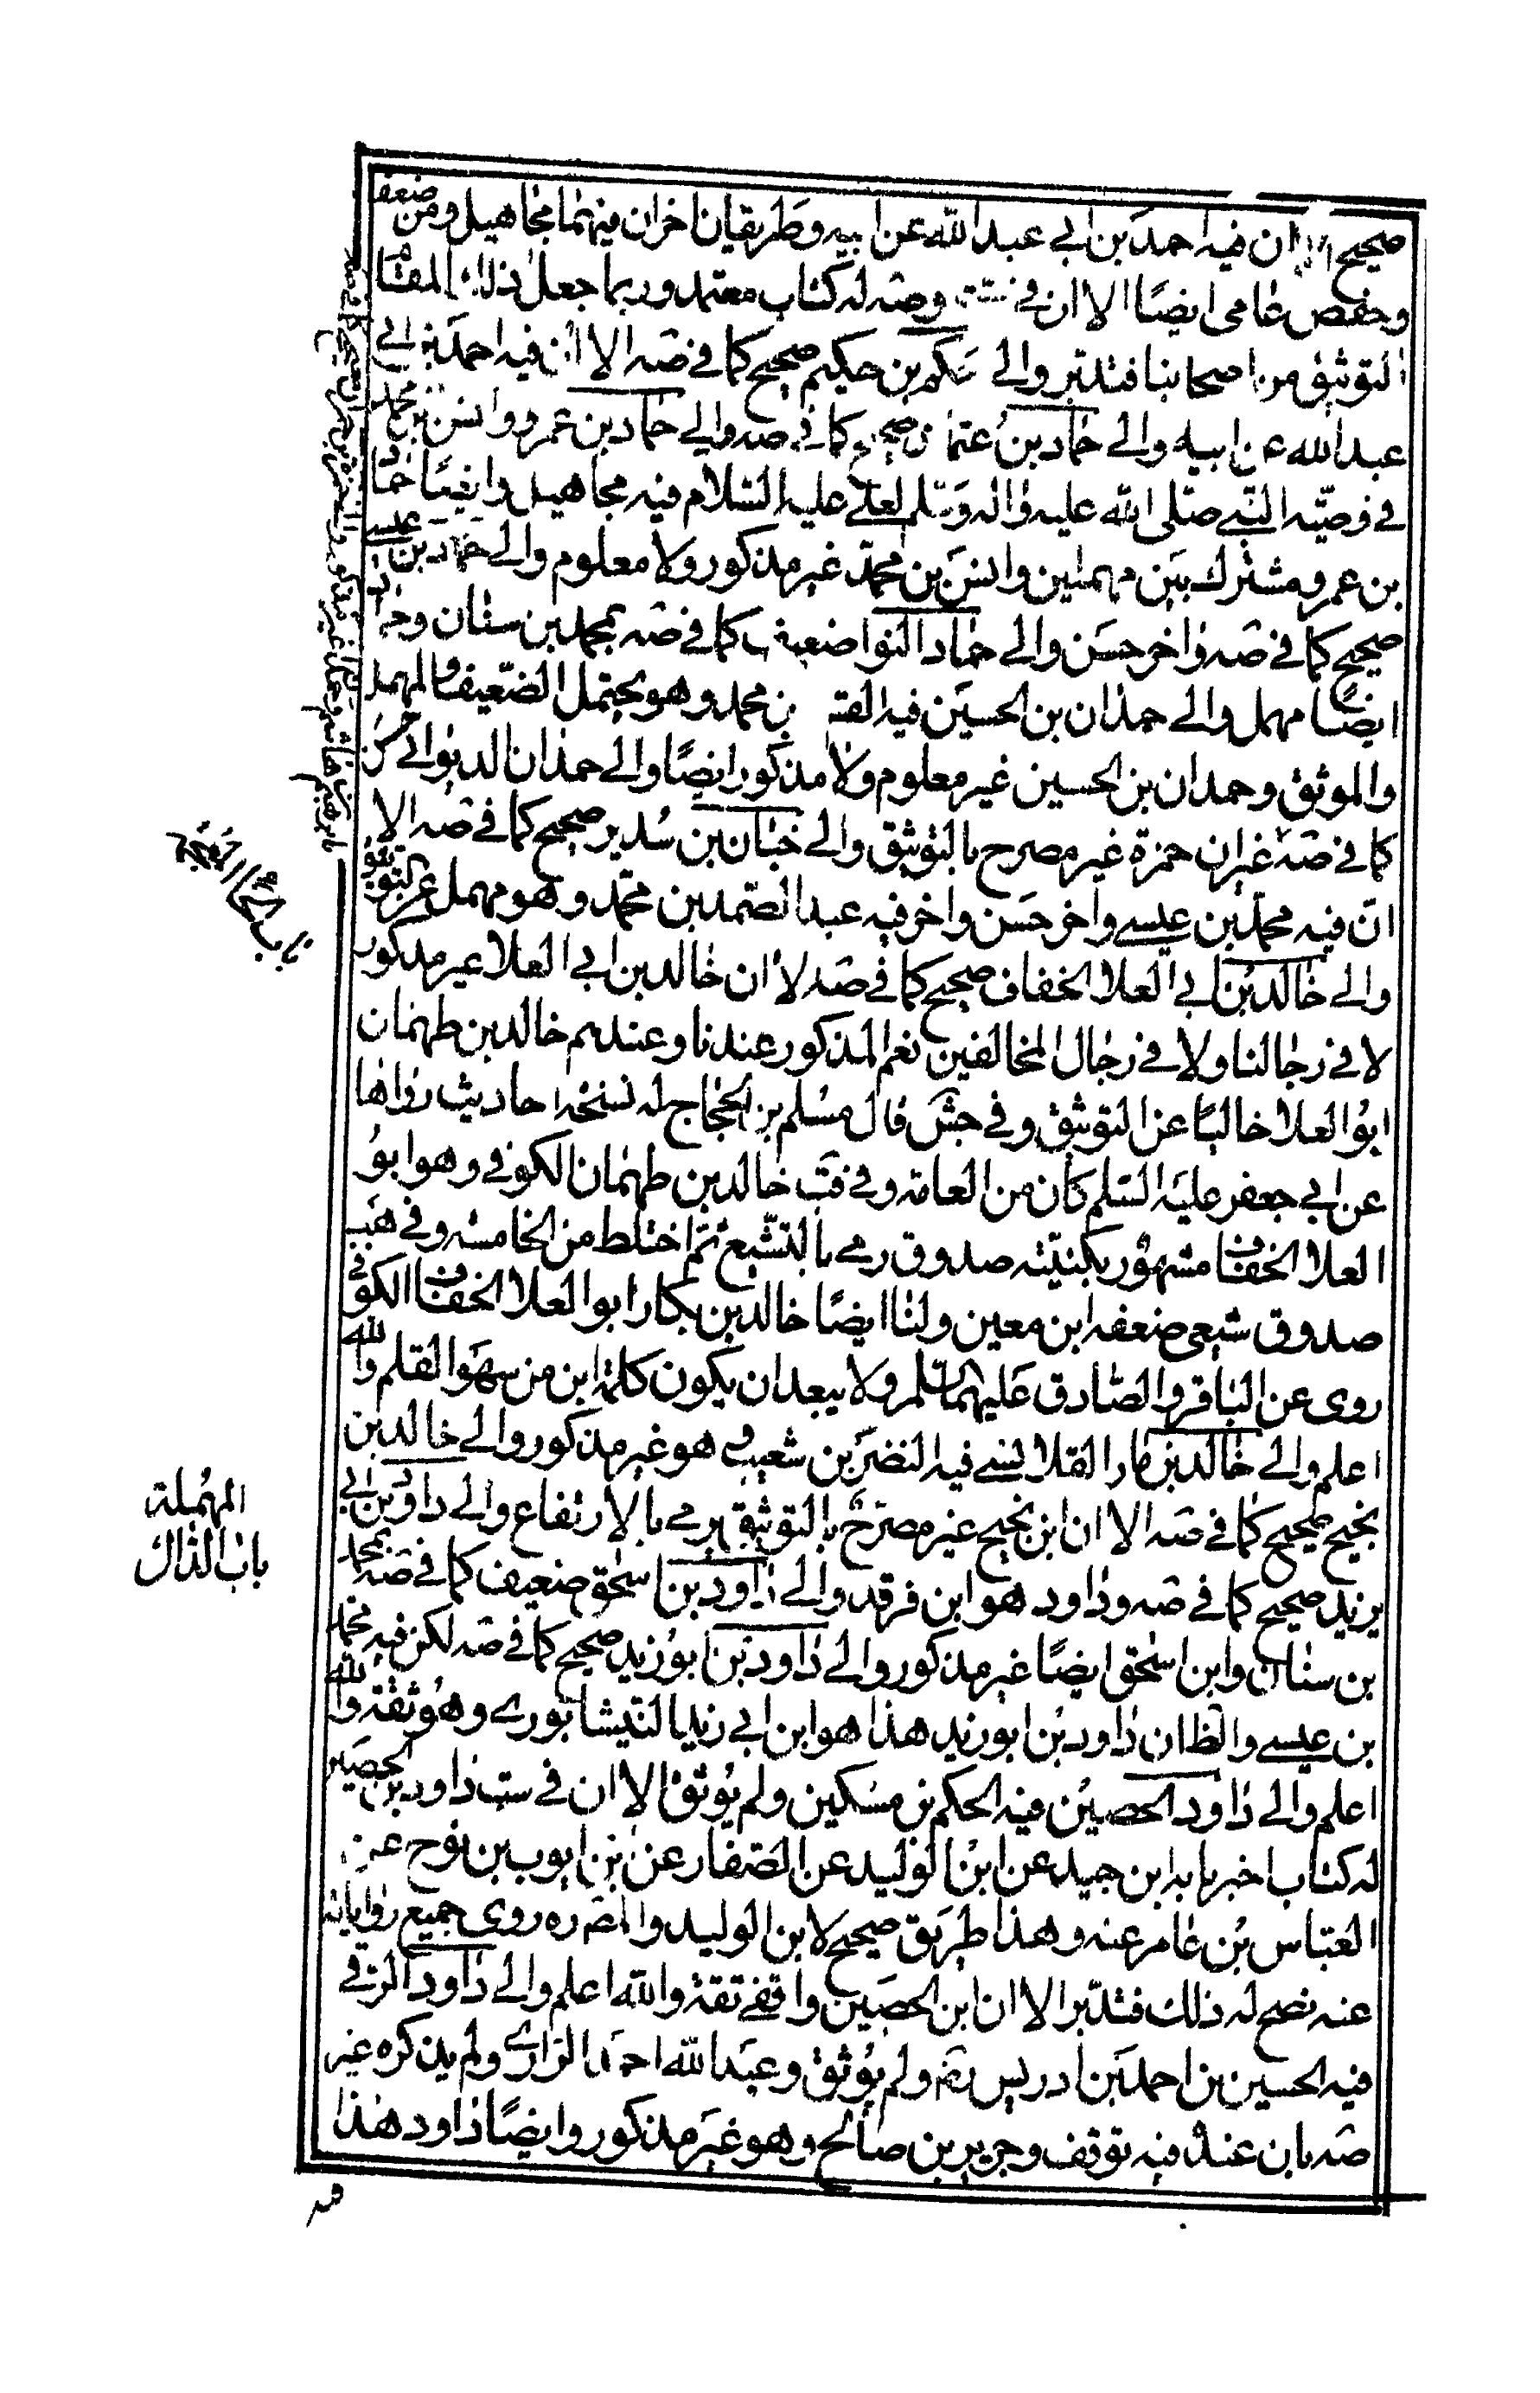 صحيح الا ان فيه احمد بن ابي عبد الله عن ابيه وطريقان اخران فيهما مجاهيل ومن ضعف
وحفص عامى ايضًا الا ان في ست وصه له كتاب معتمد وربما جعل ذلك المقام
التوثيق من اصحابنا فتدبر والى حكم بن حكيم صحيح كما في صه الا ان فيه احمد بن ابي
عبد الله عن ابيه والى حماد بن عثمان صحيح كما في صه والى حماد بن عمرو وانس بن محمد
في وصيّه النبي صلى الله عليه واله وسلم لعلى عليه السلام فيه مجاهيل وايضًا حماد
بن عمرو مشترك بين مهملين وانس بن محمد غير مذكور ولا معلوم والى حماد بن عيسى
صحيح كما في صه واخر حسن والى حماد النوا ضعيف كما في صه بمحمد بن سنان
ايضًا مهمل والى حمدان بن الحسين فيه بن محمد وهو يحتمل الضعيف والمهمل
والموثق وحمدان بن الحسين غير معلوم ولا مذكور ايضًا والى حمدان الديوانى حسن
كما في صه غير ان حمزة غير مصرح بالتوثيق والى حنان بن سدير صحيح كما في صه الا
ان فيه محمد بن عيسى واخر حسن واخر فيه عبد الصمد بن محمد وهو مهمل عن التوثيق
والى خالد بن ابي العلا الخفاف صحيح كما في صه الا ان خالد بن ابي العلا غير مذكور
لا في رجالنا ولا في رجال المخالفين نعم المذكور عندنا وعندهم خالد بن طهمان
ابو العلا خاليًا عن التوثيق وفي جش قال مسلم بن الحجاج له نسخة احاديث رواها
عن ابي جعفر عليه السلم كان من العامة وفي قب خالد بن طهمان الكوفي وهو ابو
العلا الخفاف مشهور بكنيته صدوق رمى بالتشيع ثم اختلط من الخامسه وفي هب
صدوق شيعى ضعفه ابن معين ولنا ايضًا خالد بن بكار ابو العلا الخفاف الكوفي
روى عن الباقر والصادق عليهما السلم ولا يبعد ان يكون كلمة ابن من سهو القلم والله
اعلم والى خالد بن ماد القلانسى فيه النضر بن شعيب وهو غير مذكور والى خالد بن
نجيح صحيح كما في صه الا ان ابن نجيح غير مصرح بالتوثيق يرمى بالارتفاع والى داود بن ابي
يزيد صحيح كما في صه وداود هو ابن فرقد والى داود بن اسحق ضعيف كما في صه بمحمد
بن سنان وابن اسحق ايضًا غير مذكور والى داود بن ابو زيد صحيح كما في صه لكن فيه محمد
بن عيسى والظان داود بن ابو زيد هذا هو ابن ابي زيد النيشابورى وهو ثقة والله
اعلم والى داود الحصين فيه الحكم بن مسكين ولم يوثق الا ان في ست داود بن الحصين
له كتاب اخبرنا به ابن جيد عن ابن الوليد عن الصفار عن ايوب بن نوح عن
العباس بن عامر عنه وهذا طريق صحيح لابن الوليد والمصره روى جميع رواياته
عنه نصح له ذلك فتدبر الا ان ابن الحصين واقفى ثقة والله اعلم والى داود الرقى
فيه الحسين بن احمد بن ادريس ولم يوثق وعبد الله احمد الرازى ولم يذكره غير
صه بان عنده فيه توقف وجرير بن صالح وهو غير مذكور وايضًا داود هذا
باب الخاء المعجمة
المهملة
باب الدال